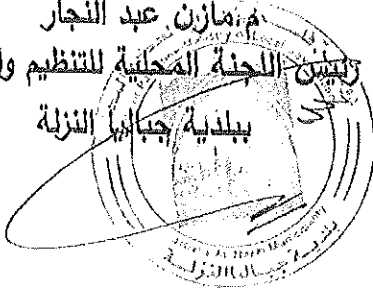 م.مازن عبد النجار
رئيس اللجنة المحلية للتنظيم وا
ببلدية جباليا النزلة
بلدية جباليا النزلة